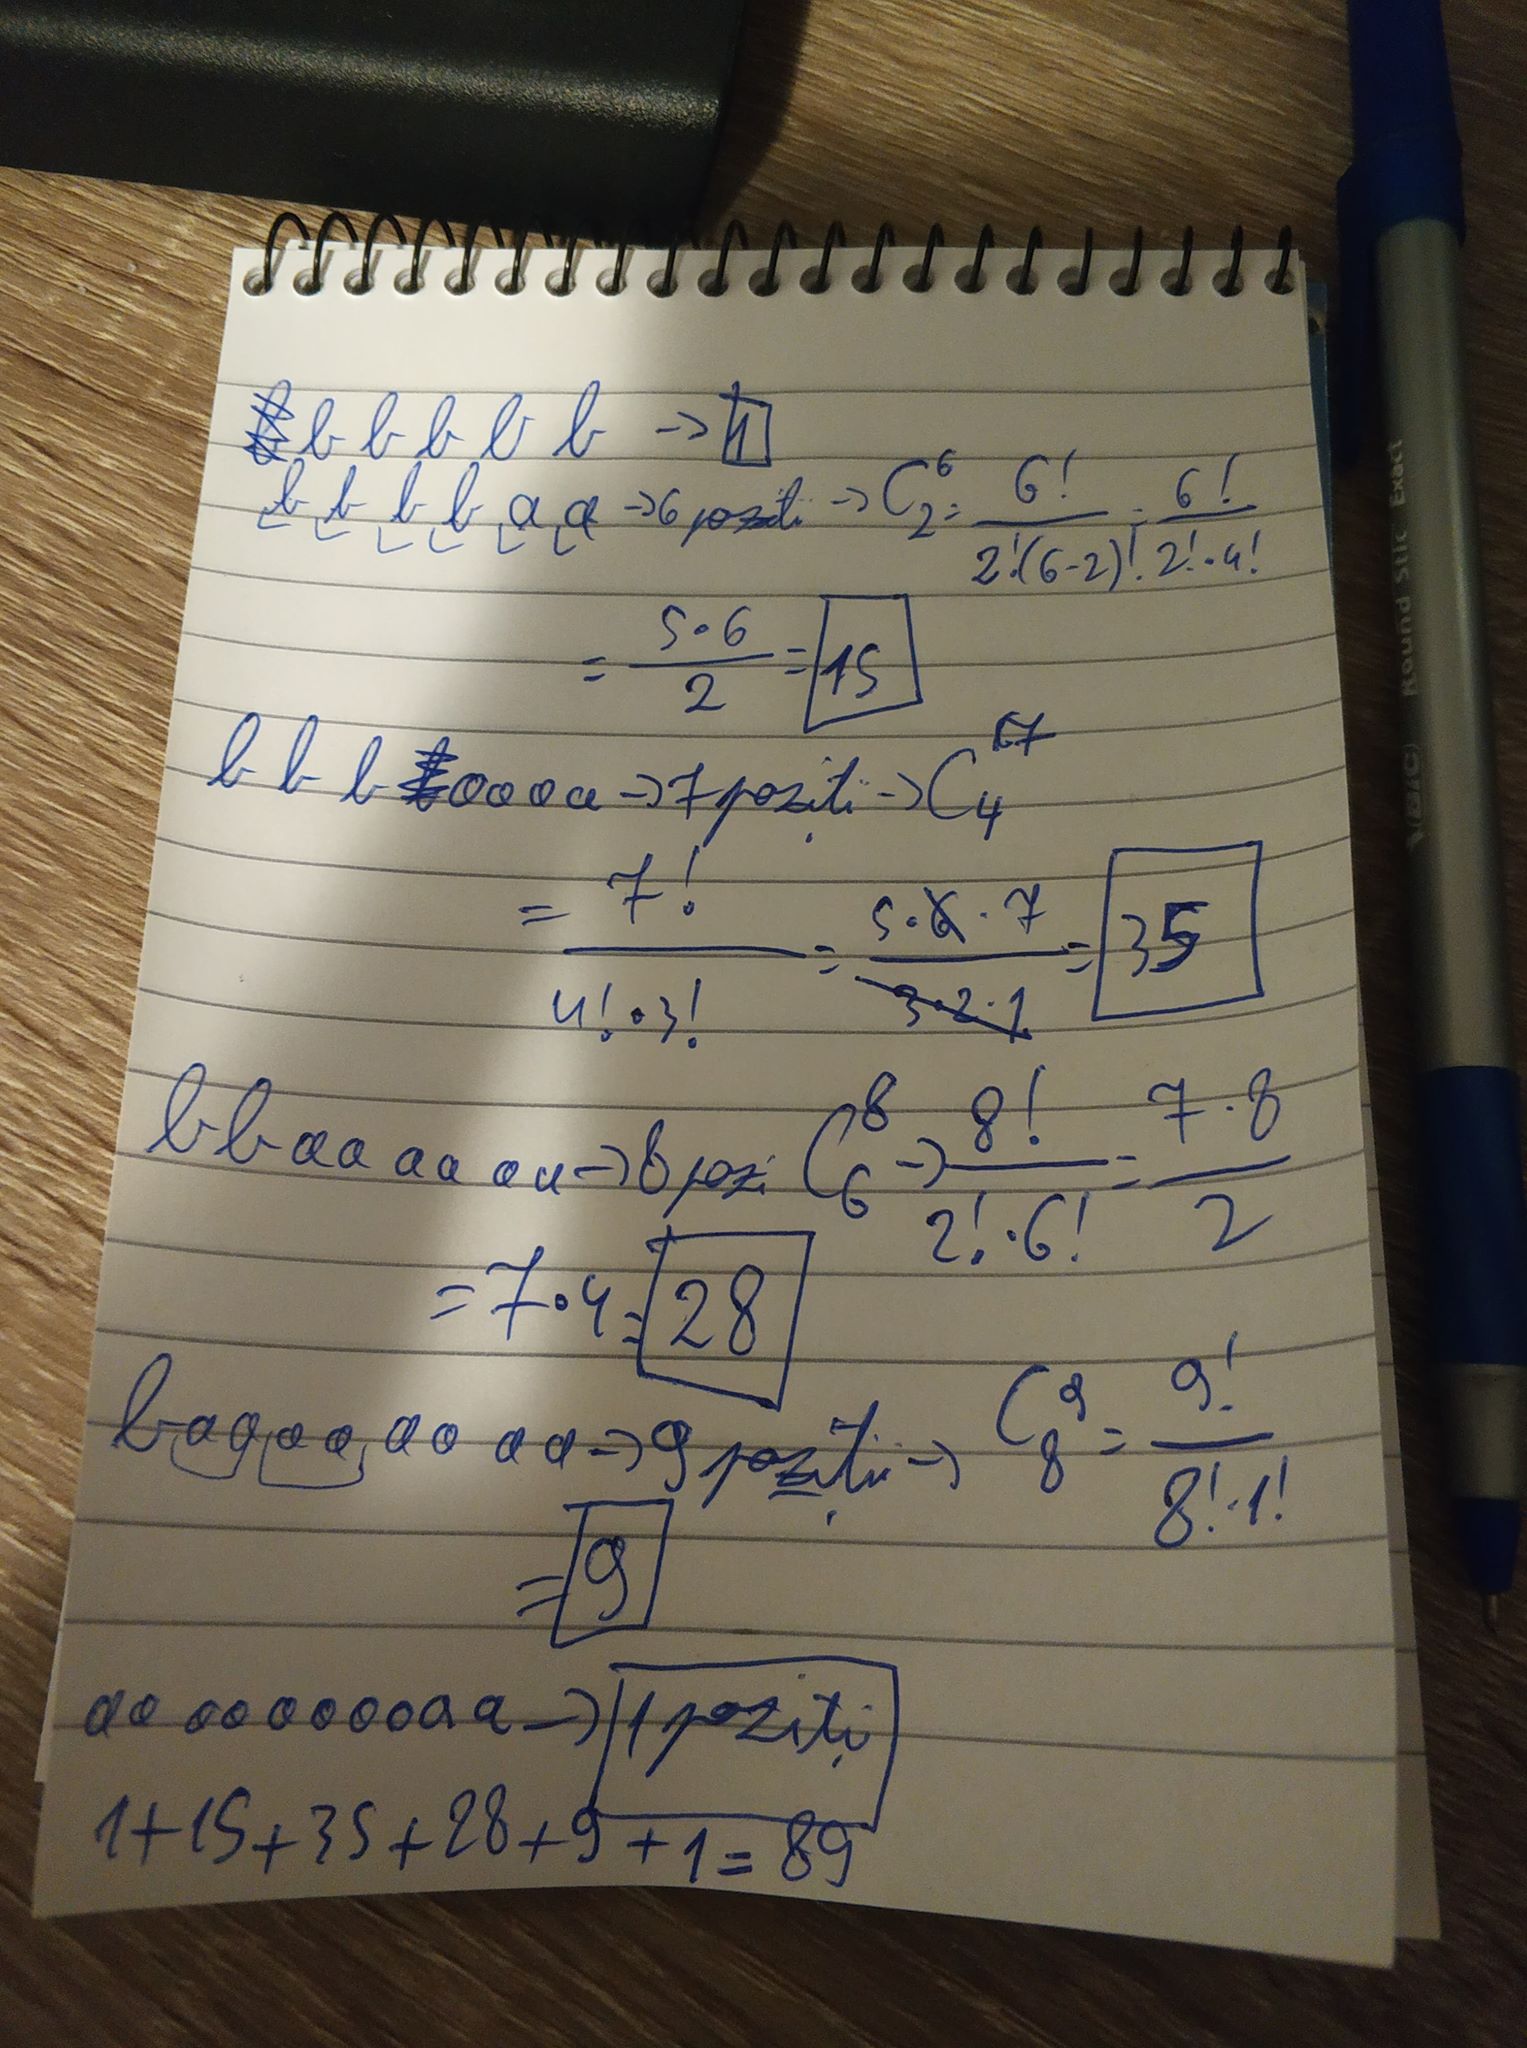 b b b b b → 1
b b b b a a → 6 poziti → C₂⁶ = 6! / 2!(6-2)! = 6! / 2!·4!
= 5·6 / 2 = 15
b b b a a a a → 7 poziți → C₄⁷
= 7! / 4!·3! = 5·6·7 / 3·2·1 = 35
b b a a a a a a → 8 pozi C₆⁸ → 8! / 2!·6! = 7·8 / 2
= 7·4 = 28
b a a a a a a a a → 9 poziții → C₈⁹ = 9! / 8!·1!
= 9
a a a a a a a a a a → 1 poziți
1+15+35+28+9+1=89
BIC Round Stic Exact